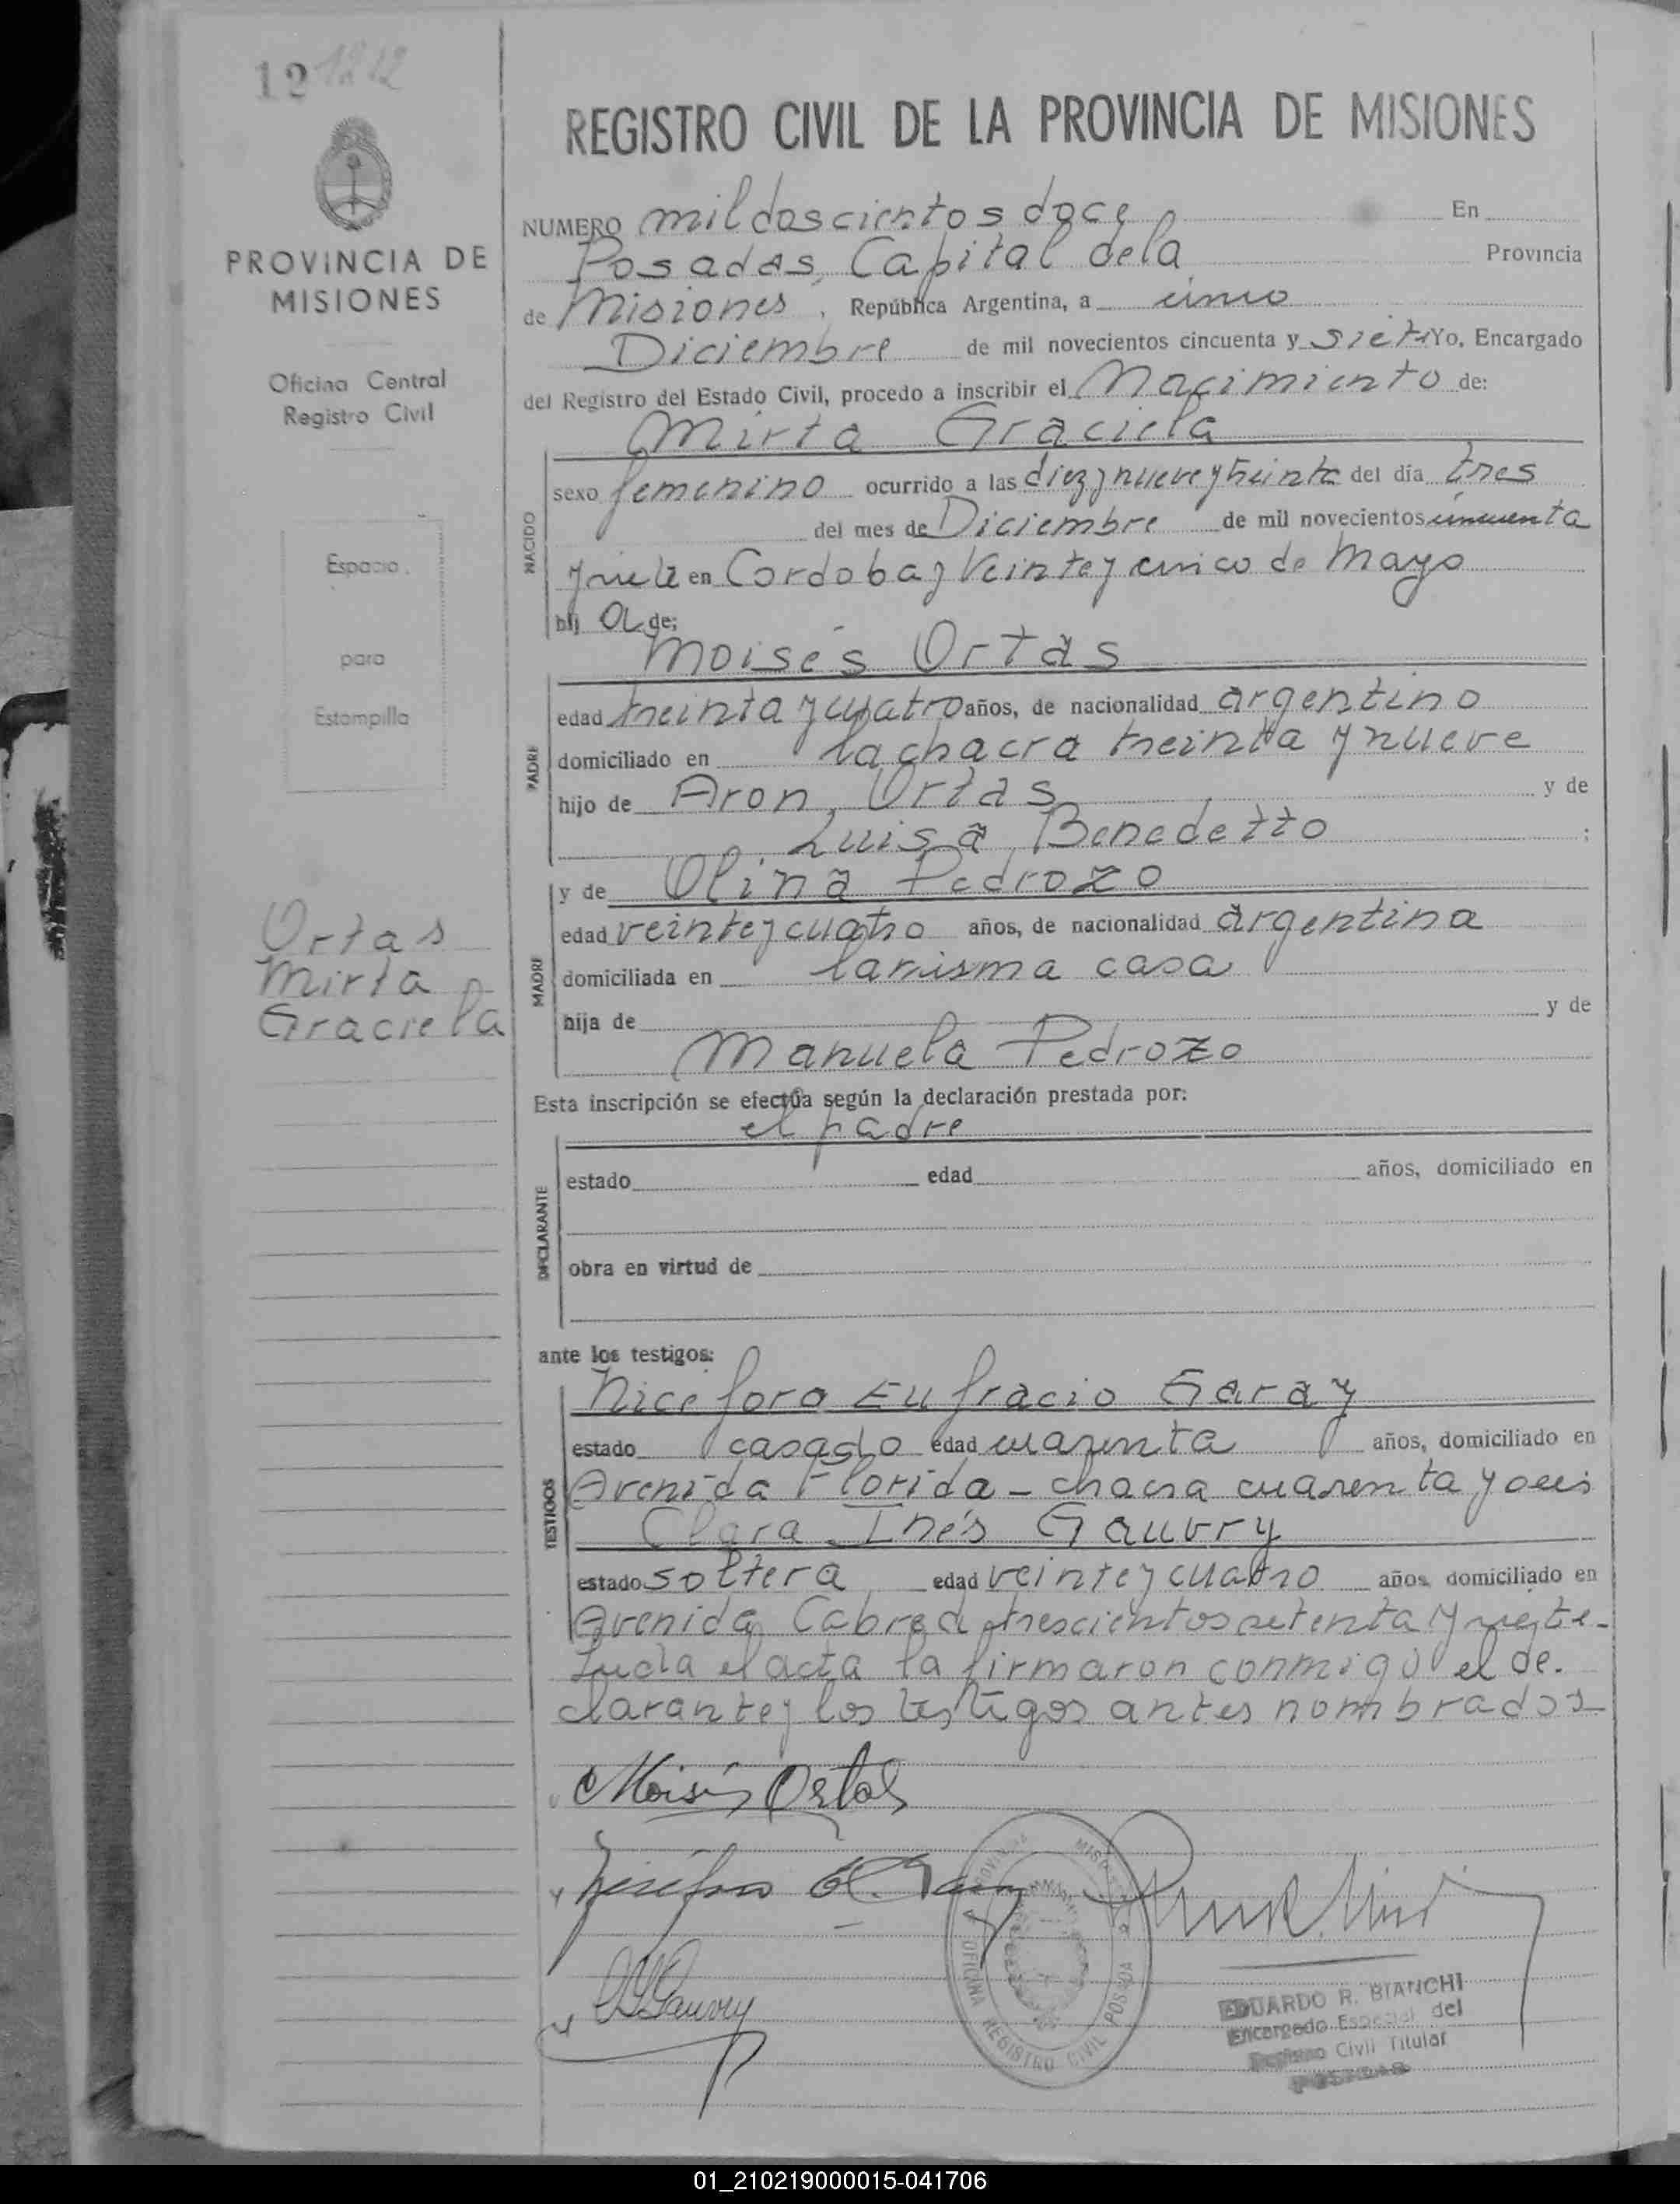 12 1212
REGISTRO CIVIL DE LA PROVINCIA DE MISIONES
PROVINCIA DE
MISIONES
Oficina Central
Registro Civil
Espacio
para
Estampilla
Ortas
Mirta
Graciela
NUMERO mil doscientos doce En
Posadas, Capital de la Provincia
de Misiones, República Argentina, a cinco
Diciembre de mil novecientos cincuenta y siete Yo, Encargado
del Registro del Estado Civil, procedo a inscribir el Nacimiento de:
Mirta Graciela
NACIDO
sexo femenino ocurrido a las diez y nueve y treinta del día tres
del mes de Diciembre de mil novecientos cincuenta
y siete en Cordoba y Veinte y cinco de Mayo
hij a de:
Moisés Ortas
PADRE
edad treinta y cuatro años, de nacionalidad argentino
domiciliado en la chacra treinta y nueve
hijo de Aron Ortas y de
Luisa Benedetto ;
y de Olina Pedrozo
MADRE
edad veinte y cuatro años, de nacionalidad argentina
domiciliada en la misma casa
hija de y de
Manuela Pedrozo
Esta inscripción se efectúa según la declaración prestada por:
el padre
DECLARANTE
estado edad años, domiciliado en
obra en virtud de
ante los testigos:
Niceforo Eufracio Garay
TESTIGOS
estado casado edad cuarenta años, domiciliado en
Avenida Florida - chacra cuarenta y seis
Clara Inés Gauvry
estado soltera edad veinte y cuatro años domiciliado en
Avenida Cabred trescientos setenta y siete-
Leida el acta la firmaron conmigo el de.
clarante y los testigos antes nombrados
Moisés Ortas
Niceforo E. Garay
C I Gauvry
PROVINCIA MISIONES
OFICINA REGISTRO CIVIL POSADAS
EDUARDO R. BIANCHI
Encargado Especial del
Registro Civil Titular
POSADAS
01_210219000015-041706